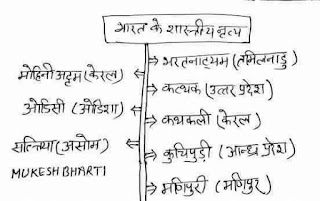 भारत के शास्त्रीय नृत्य
मोहिनी अट्टम (केरल)
ओडिसी (ओडिशा)
सत्त्रिया (असोम)
MUKESH BHARTI
भरतनाट्यम (तमिलनाडु)
कत्थक (उत्तर प्रदेश)
कथकली (केरल)
कुचिपुड़ी (आन्ध्र प्रदेश)
मणिपुरी (मणिपुर)